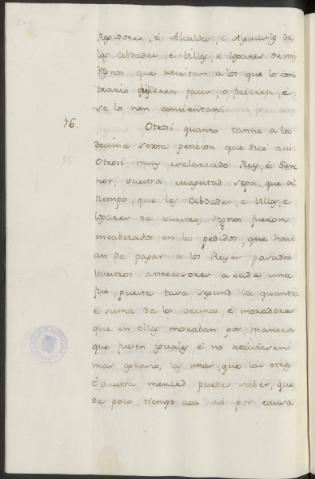 Regidores, é Alcaldes, é Alguaciles de
las Cibdades, é Villas, é Logares de mi
Regnos que resistan a los que lo con
trario quisieren facer, o pelearen, é
se lo non consientan.
16. Otrosi quanto tanne a la
decima sexta peticion que dice asi:
Otrosi muy esclarecido Rey, é Sen
nor, vuestra magestad sepa, que al
tiempo, que las Cibdades, é Villas, é
Logares de vuestros Regnos fueron
encabezados en los pedidos, que havi
an de pagar a los Reyes pasados
vuestros antecesores a cada una
fue puesta tasa, segund la quantia
é suma de los vecinos, é moradores
que en ellas moraban por manera
que fuesen iguales, é no recibiesen
mas agravio, las unas, que las otras
é vuestra merced puede saber, que
de poco tiempo aca asi por causa